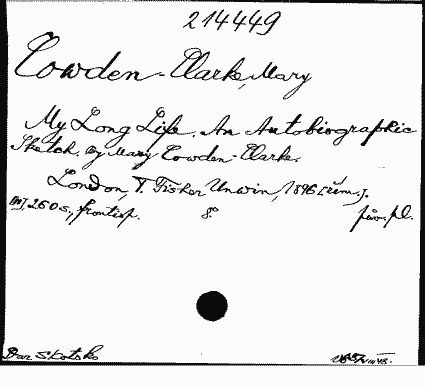 214449
Cowden-Clarke, Mary
My Long Life. An Autobiographic
Sketch. By Mary Cowden-Clarke.
London, T. Fisher Unwin, 1896 [řím.].
260 s., frontisp. 8. pův. pl.
Dar